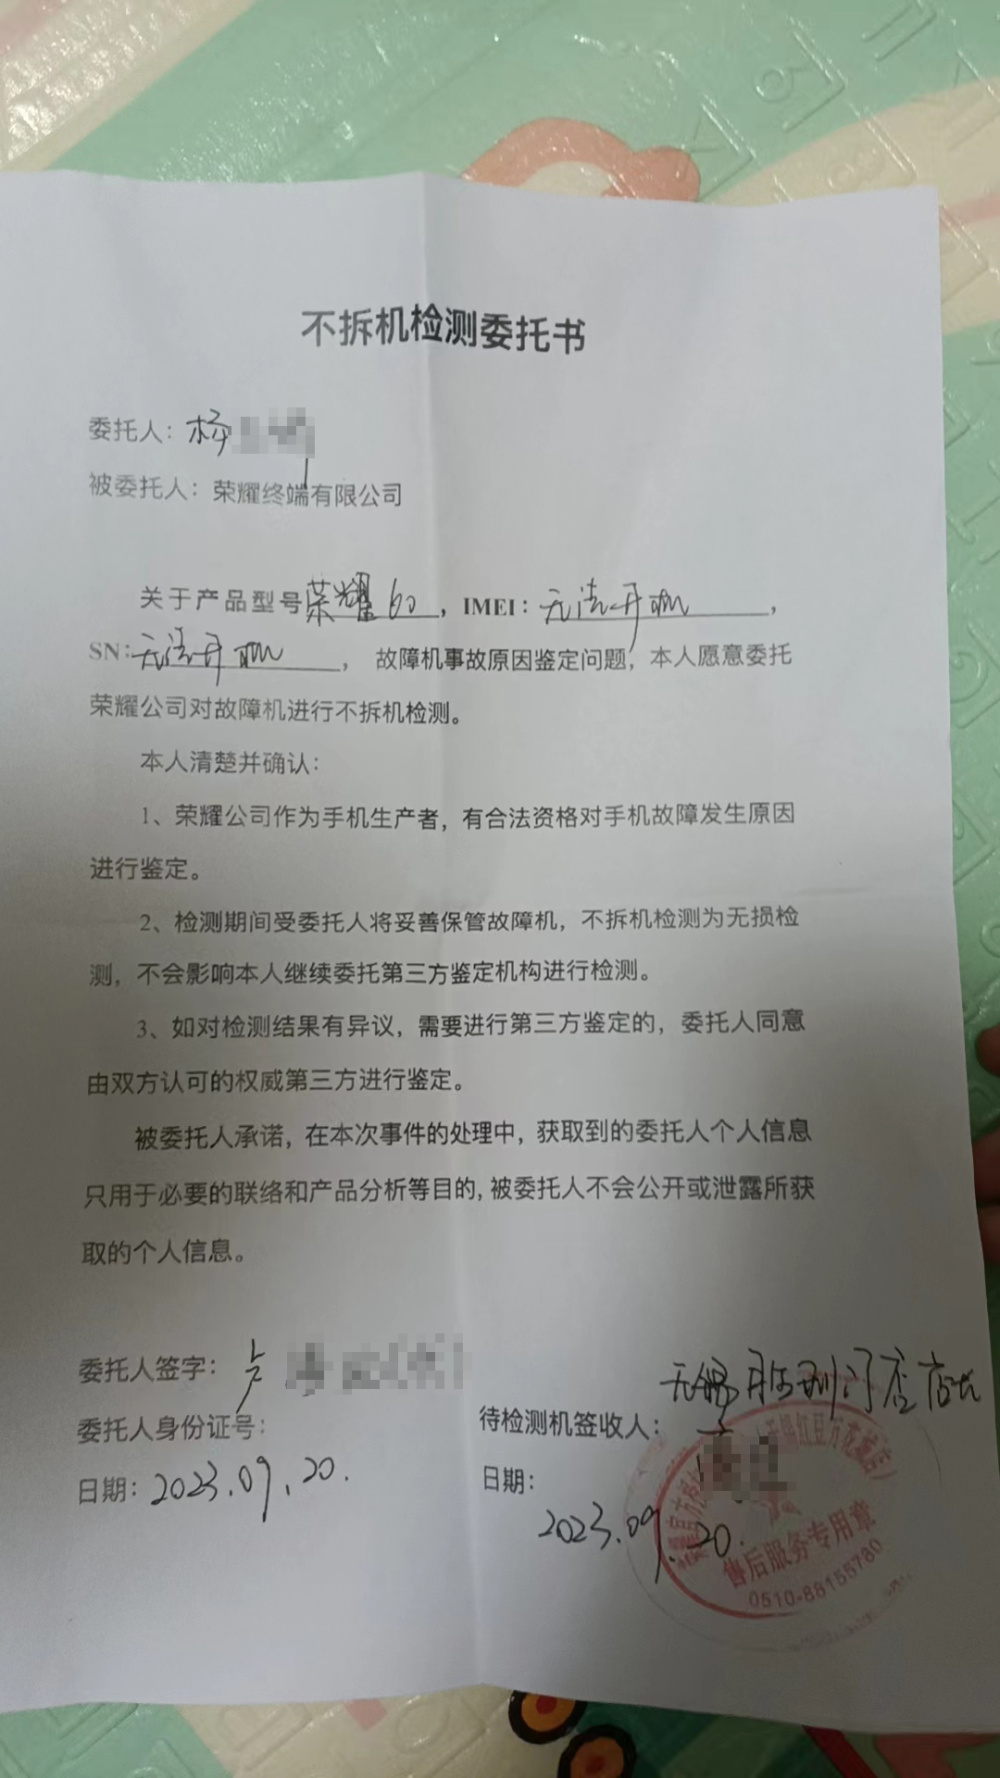 不拆机检测委托书
委托人：杨
被委托人：荣耀终端有限公司
关于产品型号荣耀60，IMEI：无法开机，
SN：无法开机，故障机事故原因鉴定问题，本人愿意委托
荣耀公司对故障机进行不拆机检测。
本人清楚并确认：
1、荣耀公司作为手机生产者，有合法资格对手机故障发生原因
进行鉴定。
2、检测期间受委托人将妥善保管故障机，不拆机检测为无损检
测，不会影响本人继续委托第三方鉴定机构进行检测。
3、如对检测结果有异议，需要进行第三方鉴定的，委托人同意
由双方认可的权威第三方进行鉴定。
被委托人承诺，在本次事件的处理中，获取到的委托人个人信息
只用于必要的联络和产品分析等目的，被委托人不会公开或泄露所获
取的个人信息。
委托人签字：卢
无锡胜利门店店长
委托人身份证号：
待检测机签收人：
日期：2023.09.20.
日期：
2023.09.20.
售后服务专用章
0510-88155780